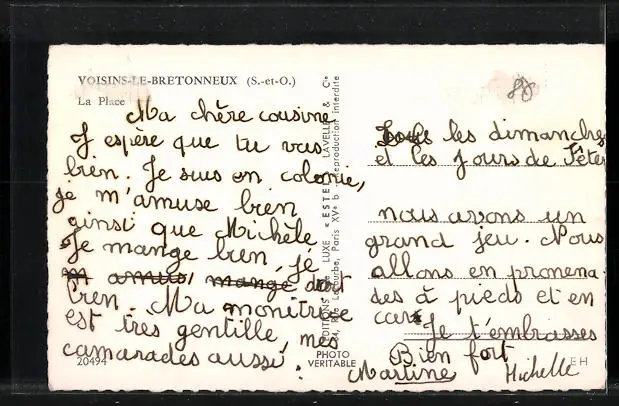 VOISINS-LE-BRETONNEUX (S.-et-O.)
La Place
Ma chère cousine
J espère que tu vas
bien. Je suis en colonie,
je m'amuse bien
ainsi que Michèle
Je mange bien, je
m amuse mange dort
bien. Ma monitrice
est très gentille, mes
camarades aussi.
20494
PHOTO
VERITABLE
ÉDITIONS DE LUXE « ESTEL » LAVELLE & Cie
Paris XVe Reproduction interdite
Tous les dimanches
et les jours de Fêtes
nous avons un
grand jeu. Nous
allons en promena
des à pieds et en
cars
Je t'embrasses
Bien fort
Martine Michelle
EH